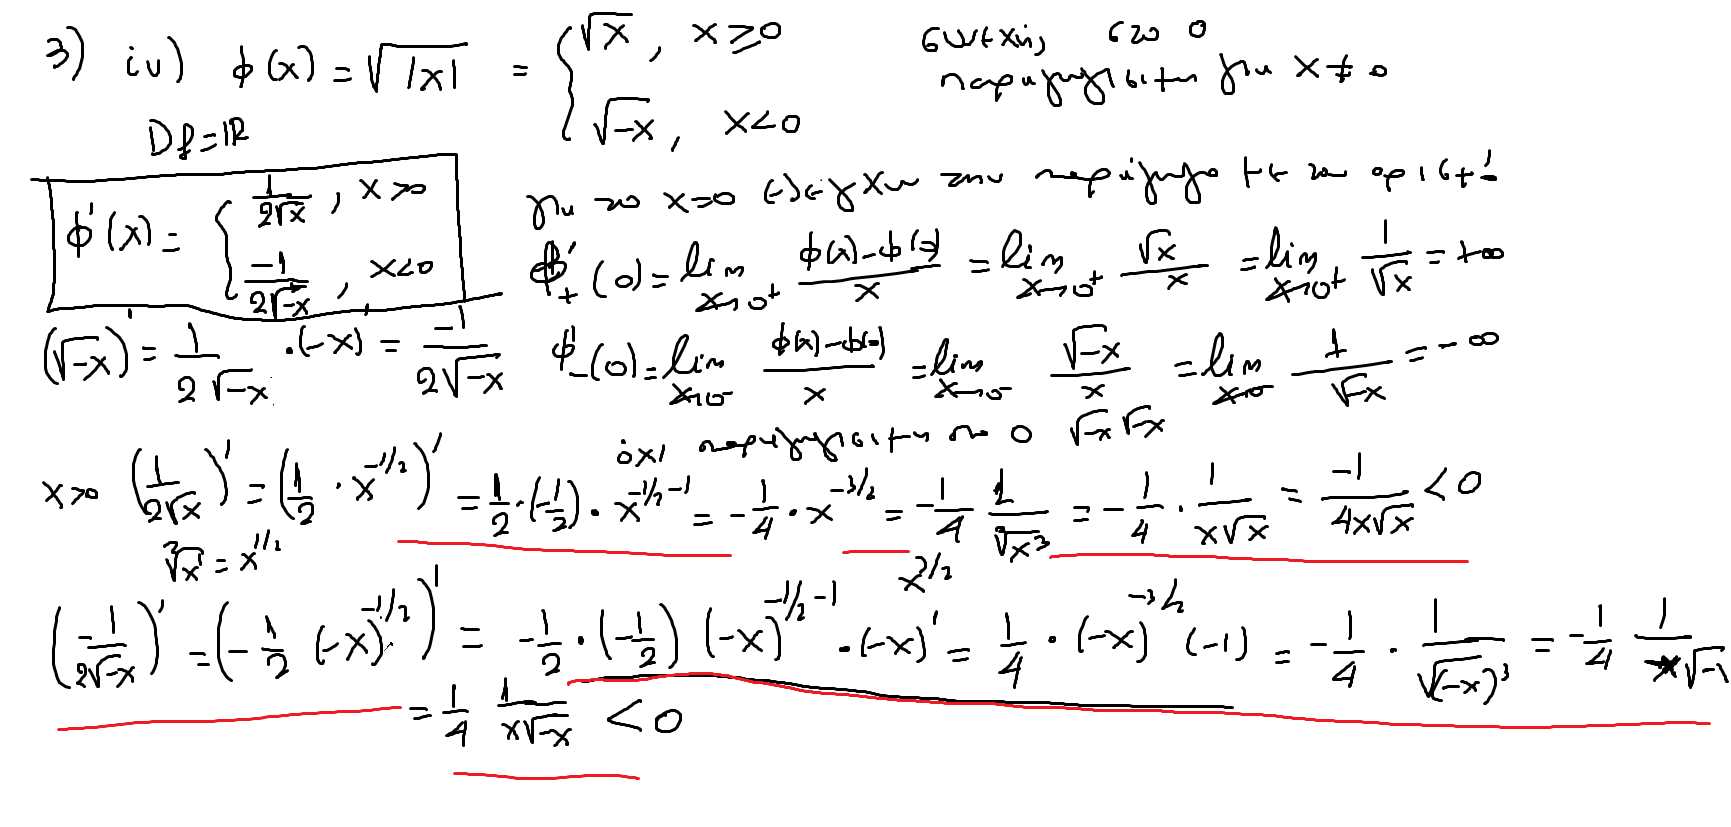 3) iv) φ(x) = √|x| = { √x , x ≥ 0
συνεχής στο 0
√-x , x<0
παραγωγίσιμη για x ≠ 0
Df = ℝ
φ'(x) = { 1/(2√x) , x>0
-1/(2√-x) , x<0
για το x=0 ελέγχω την παράγωγο με τον ορισμό
φ'₊(0) = lim x→0⁺ (φ(x)-φ(0))/x = lim x→0⁺ √x/x = lim x→0⁺ 1/√x = +∞
(√-x)' = 1/(2√-x) · (-x)' = -1/(2√-x)
φ'₋(0) = lim x→0⁻ (φ(x)-φ(0))/x = lim x→0⁻ √-x/x = lim x→0⁻ 1/√-x = -∞
όχι παραγωγίσιμη στο 0 √-x √-x
x>0 (1/(2√x))' = (1/2 · x^(-1/2))' = 1/2·(-1/2)· x^(-1/2-1) = -1/4 · x^(-3/2) = -1/4 1/²√x³ = -1/4 · 1/(x√x) = -1/(4x√x) < 0
²√x¹ = x^(1/2)
x^(3/2)
(-1/(2√-x))' = (-1/2 (-x)^(-1/2))' = -1/2 · (-1/2) (-x)^(-1/2-1) · (-x)' = 1/4 · (-x)^(-3/2) (-1) = -1/4 · 1/√(-x)³ = -1/4 1/(-x√-x)
= 1/4 1/(x√-x) < 0